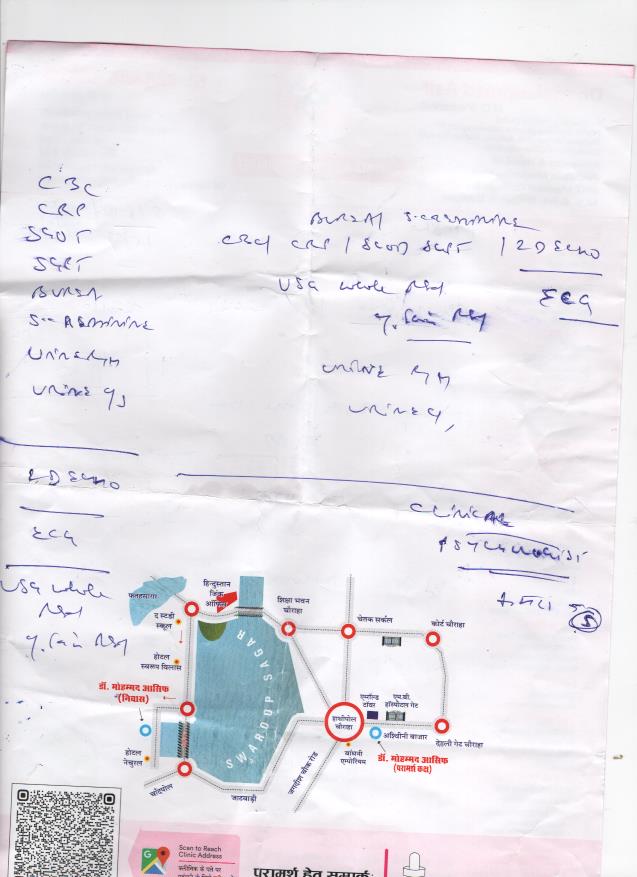 CBC
CRP
SGOT
SGPT
BUREA
S-CREATININE
URINE R/M
URINE
2D ECHO
ECG
USG whole
BUREA / S-CREATININE
CBC / CRP / SGOT SGPT / 2D ECHO
USG whole
ECG
URINE R/M
URINE
CLINICAL
PSYCHOLOGIST
5
फतहसागर
हिन्दुस्तान
जिंक
ऑफिस
द स्टडी
स्कूल
शिक्षा भवन
चौराहा
चेतक सर्कल
कोर्ट चौराहा
होटल
स्वरूप विलास
SWAROOP SAGAR
डॉ. मोहम्मद आसिफ
(निवास)
होटल
नेचुरल
चाँदपोल
जाडावाड़ी
जगदीश चौक रोड
हाथीपोल
चौराहा
एमराल्ड
टॉवर
एम.बी.
हॉस्पीटल गेट
अश्विनी बाजार
देहली गेट चौराहा
बांधनी
एम्पोरियम
डॉ. मोहम्मद आसिफ
(परामर्श कक्ष)
Scan to Reach
Clinic Address
क्लीनिक के पते पर
परामर्श हेतु सम्पर्क: